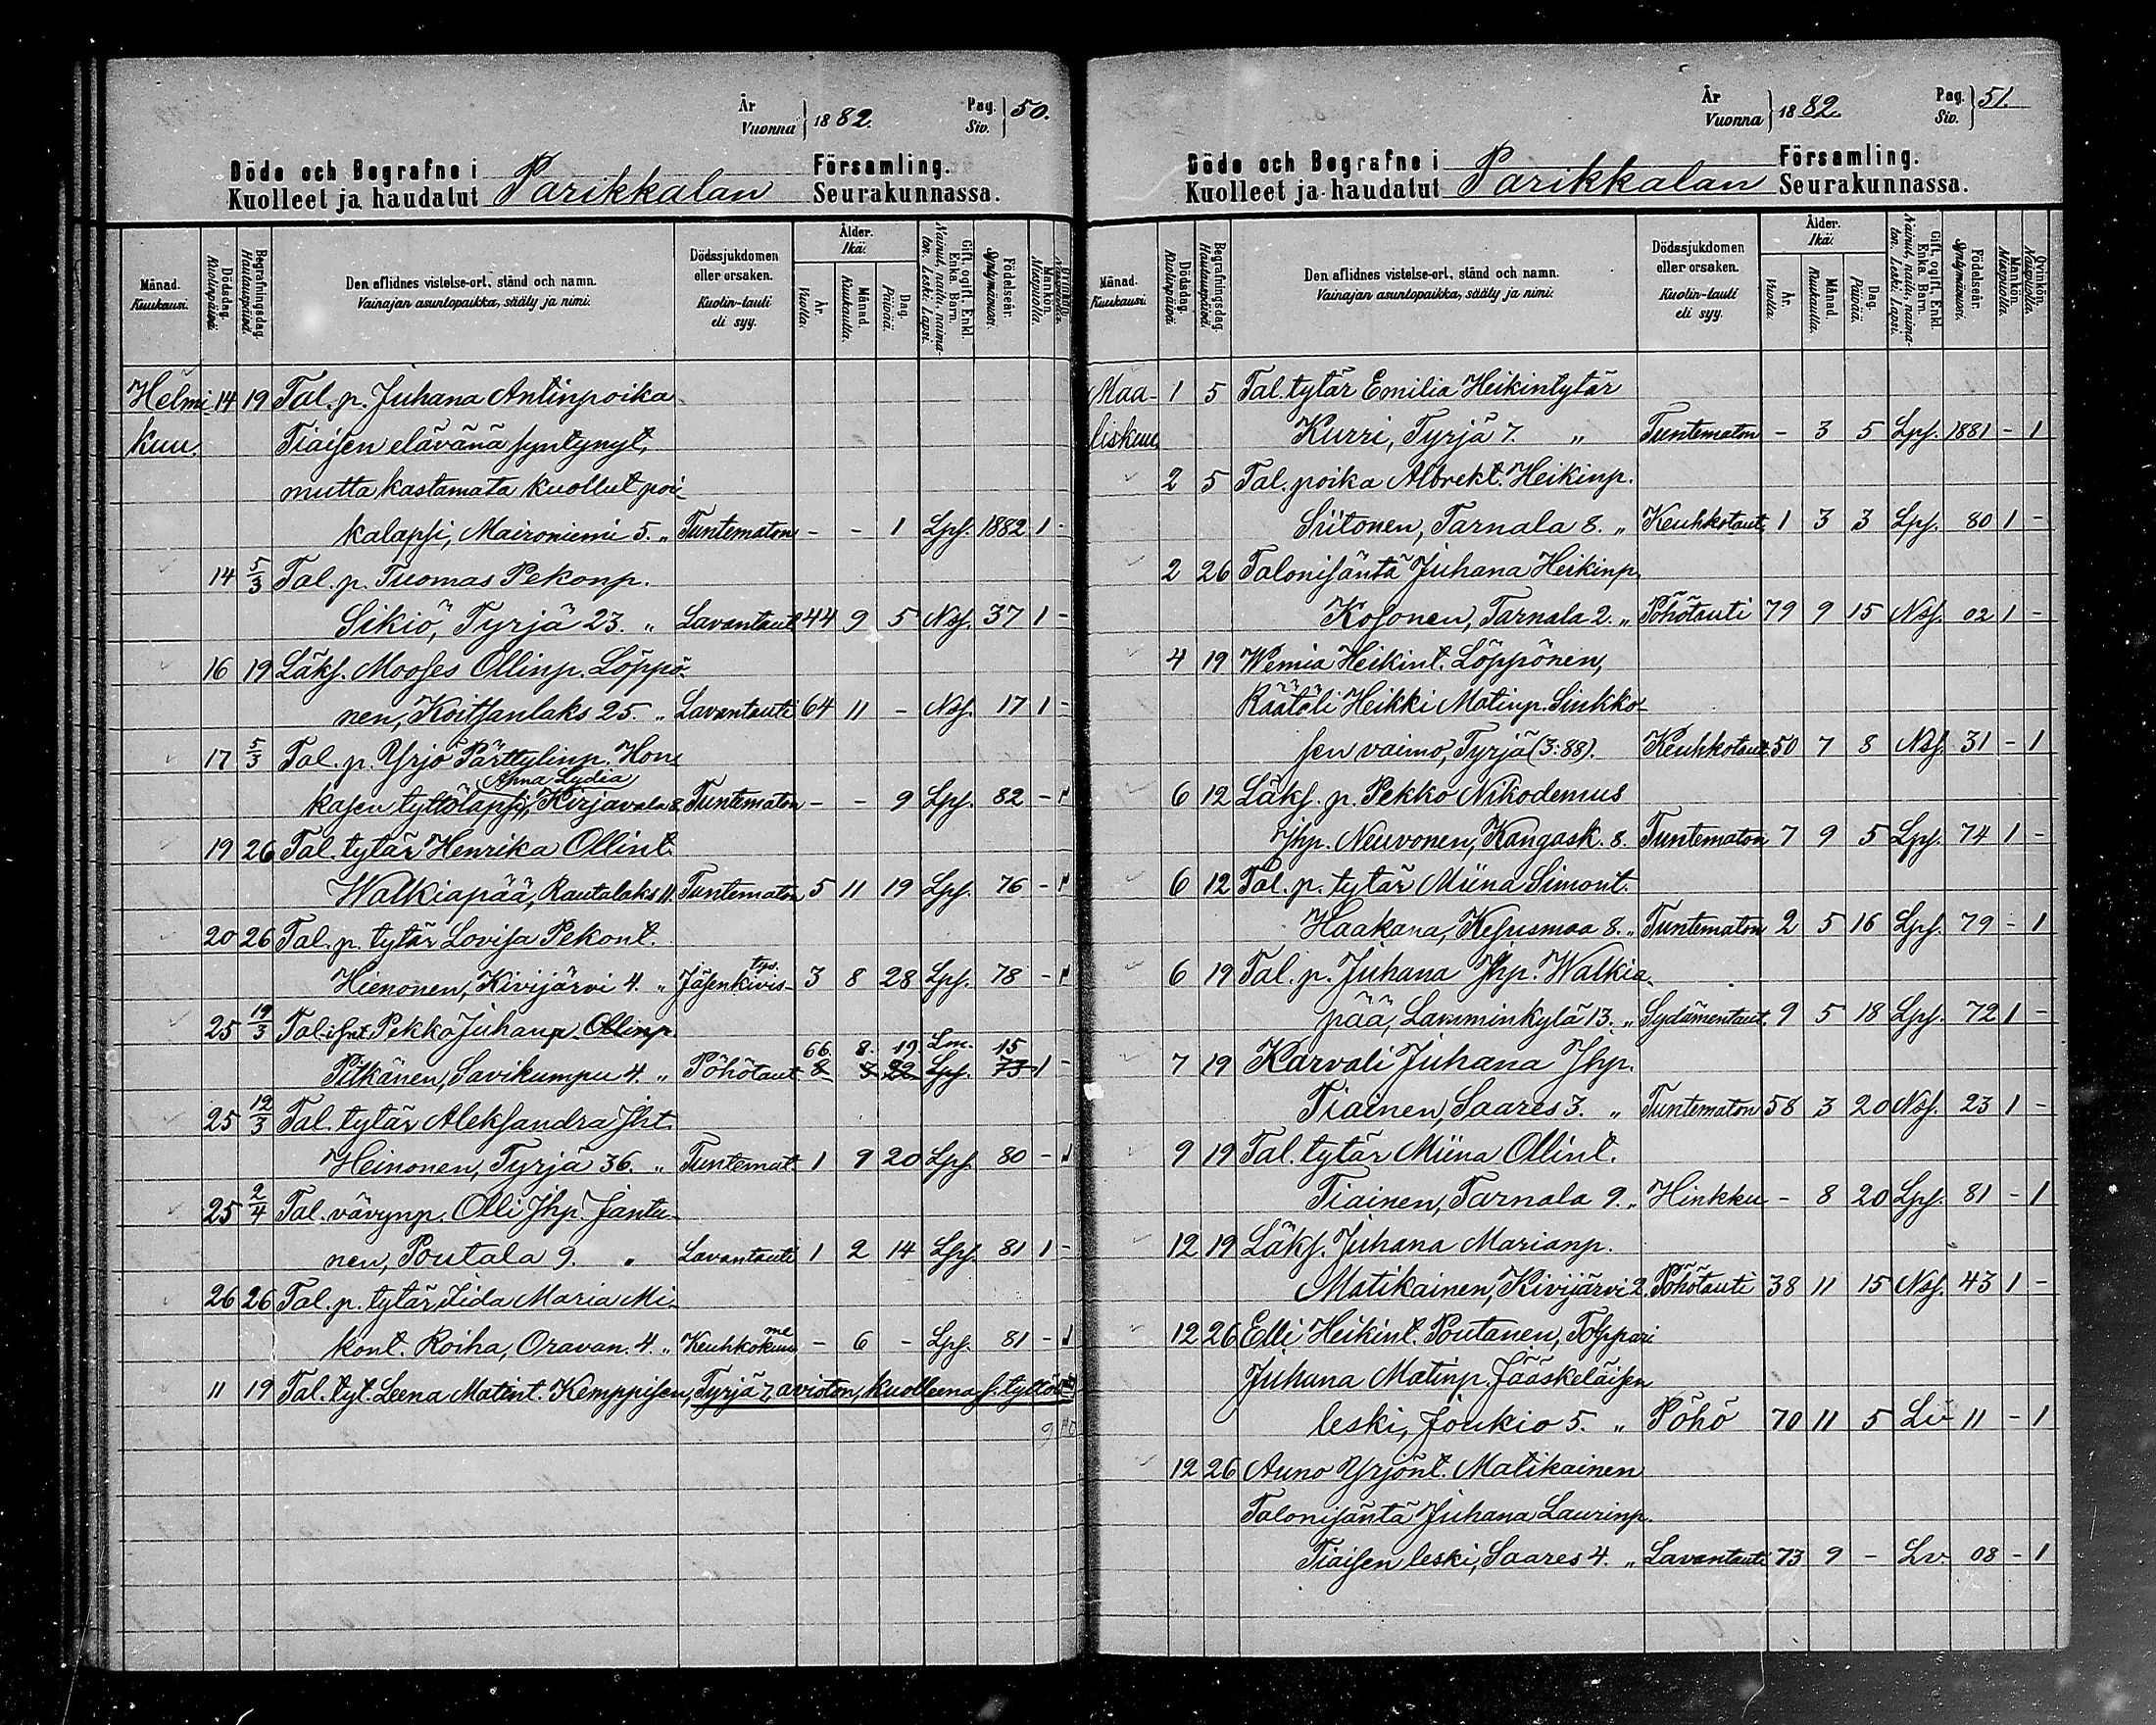 År Vuonna 1882. Pag. Siv. 50.
Döde och Begrafne i Församling.
Kuolleet ja haudatut Parikkalan Seurakunnassa.
Månad. Kuukausi.
Dödsdag. Kuolinpäivä.
Begrafningsdag. Hautauspäivä.
Den aflidnes vistelse-ort, stånd och namn.
Vainajan asuntopaikka, sääty ja nimi.
Dödssjukdomen eller orsaken.
Kuolin-tauti eli syy.
Ålder. Ikä.
År. Vuotta.
Månad. Kuukautta.
Dag. Päivää.
Gift, ogift, Enkl. Enka. Barn.
Nainut, naitu, naimaton. Leski. Lapsi.
Födelseår. Syntymävuosi.
Mankön. Miespuolta.
Helmi 14 19 Tal. p. Juhana Antinpoika
kuu. Tiaisen elävänä syntynyt,
mutta kastamata kuollut poi-
kalapsi, Maironiemi 5. „ Tuntematon - - 1 Lps. 1882 1 -
14 5/3 Tal. p. Tuomas Pekonp.
Sikiö, Tyrjä 23. „ Lavantauti 44 9 5 Nsf. 37 1 -
16 19 Läks. Mooses Ollinp. Löppö-
nen, Koitsanlaks 25. „ Lavantauti 64 11 - Nsf. 17 1 -
17 5/3 Tal. p. Yrjö Pärttylinp. Hon-
Anna Lydia
kasen tyttölapsi, Kirjavala 8. Tuntematon - - 9 Lps. 82 - 1
19 26 Tal. tytär Henrika Ollint.
Walkiapää, Rautalaks 11. Tuntematon 5 11 19 Lps. 76 - 1
20 26 Tal. p. tytär Lovisa Pekont.
Hienonen, Kivijärvi 4. „ Jäsenkivis- tys. 3 8 28 Lps. 78 - 1
25 19/3 Tal. isnt. Pekko Juhanp. Ollinp.
66. 8. 19 Lm. 15
Pitkänen, Savikumpu 4. „ Pöhötaut. 8 3 22 Lps. 73 1 -
25 12/3 Tal. tytär Aleksandra Jht.
Heinonen, Tyrjä 36. „ Tuntemat. 1 9 20 Lps. 80 - 1
25 2/4 Tal. vävynp. Olli Jhp. Jantu-
nen, Poutala 9. „ Lavantauti 1 2 14 Lps. 81 1 -
26 26 Tal. p. tytär Iida Maria Mi-
kont. Roiha, Oravan. 4. „ Keuhkokuu me - 6 - Lps. 81 - 1
11 19 Tal. tyt. Leena Matint. Kemppisen, Tyrjä 7, avioton, kuolleena s. tyttöl.
År Vuonna 1882. Pag. Siv. 51.
Döde och Begrafne i Församling.
Kuolleet ja haudatut Parikkalan Seurakunnassa.
Månad. Kuukausi.
Dödsdag. Kuolinpäivä.
Begrafningsdag. Hautauspäivä.
Den aflidnes vistelse-ort, stånd och namn.
Vainajan asuntopaikka, sääty ja nimi.
Dödssjukdomen eller orsaken.
Kuolin-tauti eli syy.
Ålder. Ikä.
År. Vuotta.
Månad. Kuukautta.
Dag. Päivää.
Gift, ogift, Enkl. Enka. Barn.
Nainut, naitu, naimaton. Leski. Lapsi.
Födelseår. Syntymävuosi.
Mankön. Miespuolta.
Qvinkön. Naispuolta.
Maa- 1 5 Tal. tytär Emilia Heikintytär
liskuu Kurri, Tyrjä 7. „ Tuntematon - 3 5 Lps. 1881 - 1
2 5 Tal. poika Albrekt. Heikinp.
Siitonen, Tarnala 8. „ Keuhkotauti 1 3 3 Lps. 80 1 -
2 26 Talonisäntä Juhana Heikinp.
Kosonen, Tarnala 2. „ Pöhötauti 79 9 15 Nsf. 02 1 -
4 19 Wemia Heikint. Löppönen,
Räätäli Heikki Matinp. Sinkko-
sen vaimo, Tyrjä (3:88). Keuhkotaut. 50 7 8 Nsf. 31 - 1
6 12 Läks. p. Pekko Nikodemus
Jhp. Neuvonen, Kangask. 8. Tuntematon 7 9 5 Lps. 74 1 -
6 12 Tal. p. tytär Miina Simont.
Haakana, Kesusmaa 8. „ Tuntematon 2 5 16 Lps. 79 - 1
6 19 Tal. p. Juhana Jhp. Walkia-
pää, Lamminkylä 13. „ Sydämentaut. 9 5 18 Lps. 72 1 -
7 19 Karvali Juhana Jhp.
Tiainen, Saares 3. „ Tuntematon 58 3 20 Nsf. 23 1 -
9 19 Tal. tytär Miina Ollint.
Tiainen, Tarnala 9. „ Hinkku - 8 20 Lps. 81 - 1
12 19 Läks. Juhana Marianp.
Matikainen, Kivijärvi 2. Pöhötauti 38 11 15 Nsf. 43 1 -
12 26 Elli Heikint. Poutanen, Tolppari
Juhana Matinp. Jääskeläisen
leski, Joukio 5. „ Pöhö 70 11 5 Lv 11 - 1
12 26 Auno Yrjönt. Matikainen
Talonisäntä Juhana Laurinp.
Tiaisen leski, Saares 4. „ Lavantauti 73 9 - Lv 08 - 1